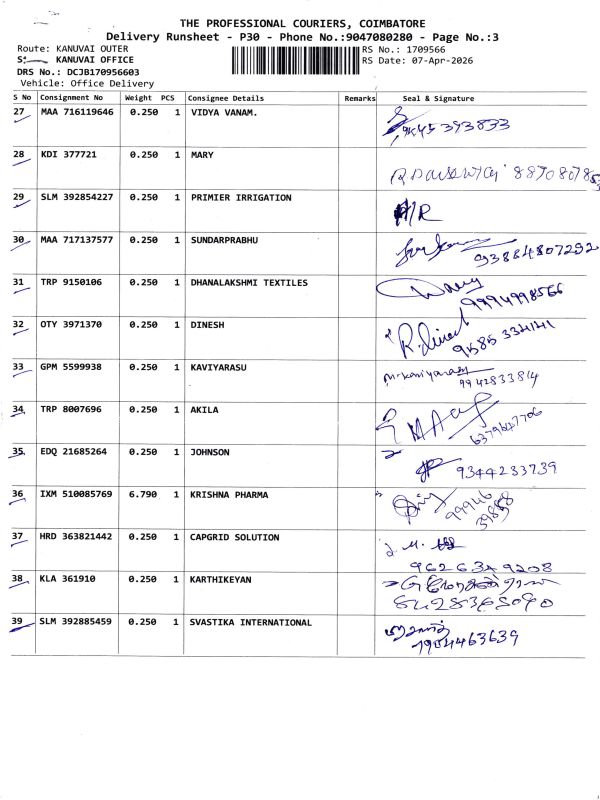 THE PROFESSIONAL COURIERS, COIMBATORE
Delivery Runsheet - P30 - Phone No.:9047080280 - Page No.:3
Route: KANUVAI OUTER RS No.: 1709566
KANUVAI OFFICE RS Date: 07-Apr-2026
DRS No.: DCJB170956603
Vehicle: Office Delivery
S No Consignment No Weight PCS Consignee Details Remarks Seal & Signature
27 MAA 716119646 0.250 1 VIDYA VANAM.
28 KDI 377721 0.250 1 MARY
29 SLM 392854227 0.250 1 PRIMIER IRRIGATION H/R
30 MAA 717137577 0.250 1 SUNDARPRABHU
93884807292
31 TRP 9150106 0.250 1 DHANALAKSHMI TEXTILES
9994998566
32 OTY 3971370 0.250 1 DINESH R.Dinesh
33 GPM 5599938 0.250 1 KAVIYARASU M-Kaviyarasu
9942833814
34 TRP 8007696 0.250 1 AKILA
6379647706
35 EDQ 21685264 0.250 1 JOHNSON 9344233739
36 IXM 510085769 6.790 1 KRISHNA PHARMA
37 HRD 363821442 0.250 1 CAPGRID SOLUTION
9626349208
38 KLA 361910 0.250 1 KARTHIKEYAN
39 SLM 392885459 0.250 1 SVASTIKA INTERNATIONAL